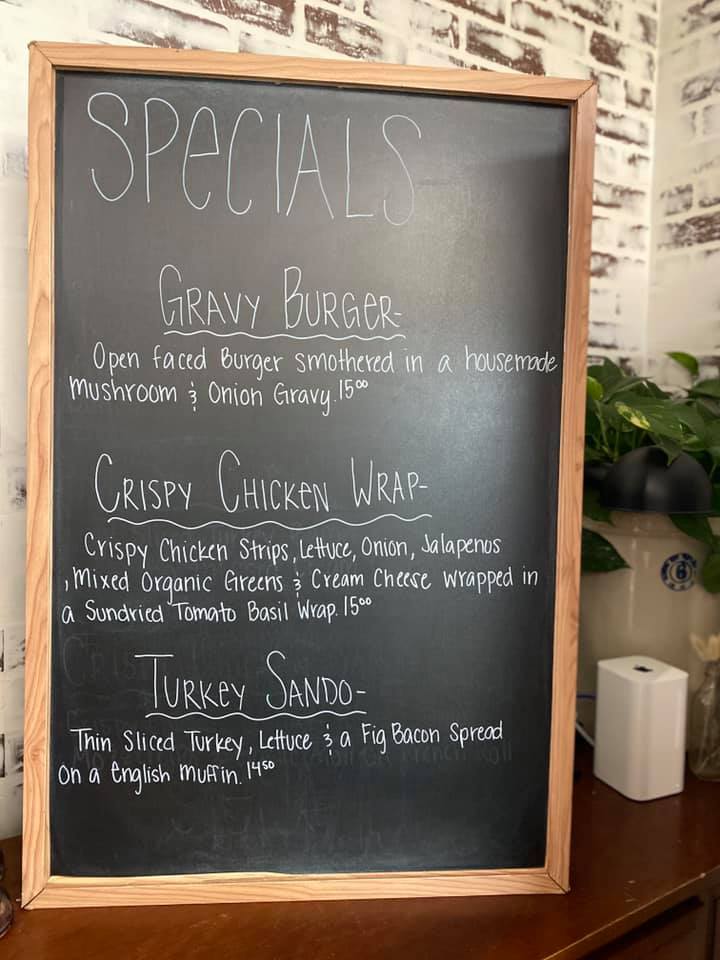 SPECIALS
GRAVY BURGER-
Open faced Burger smothered in a housemade
Mushroom & Onion Gravy. 15⁰⁰
CRISPY CHICKEN WRAP-
Crispy Chicken Strips, Lettuce, Onion, Jalapenos
, Mixed Organic Greens & Cream Cheese wrapped in
a Sundried Tomato Basil Wrap. 15⁰⁰
TURKEY SANDO-
Thin Sliced Turkey, Lettuce & a Fig Bacon Spread
On a English Muffin. 14⁵⁰
6